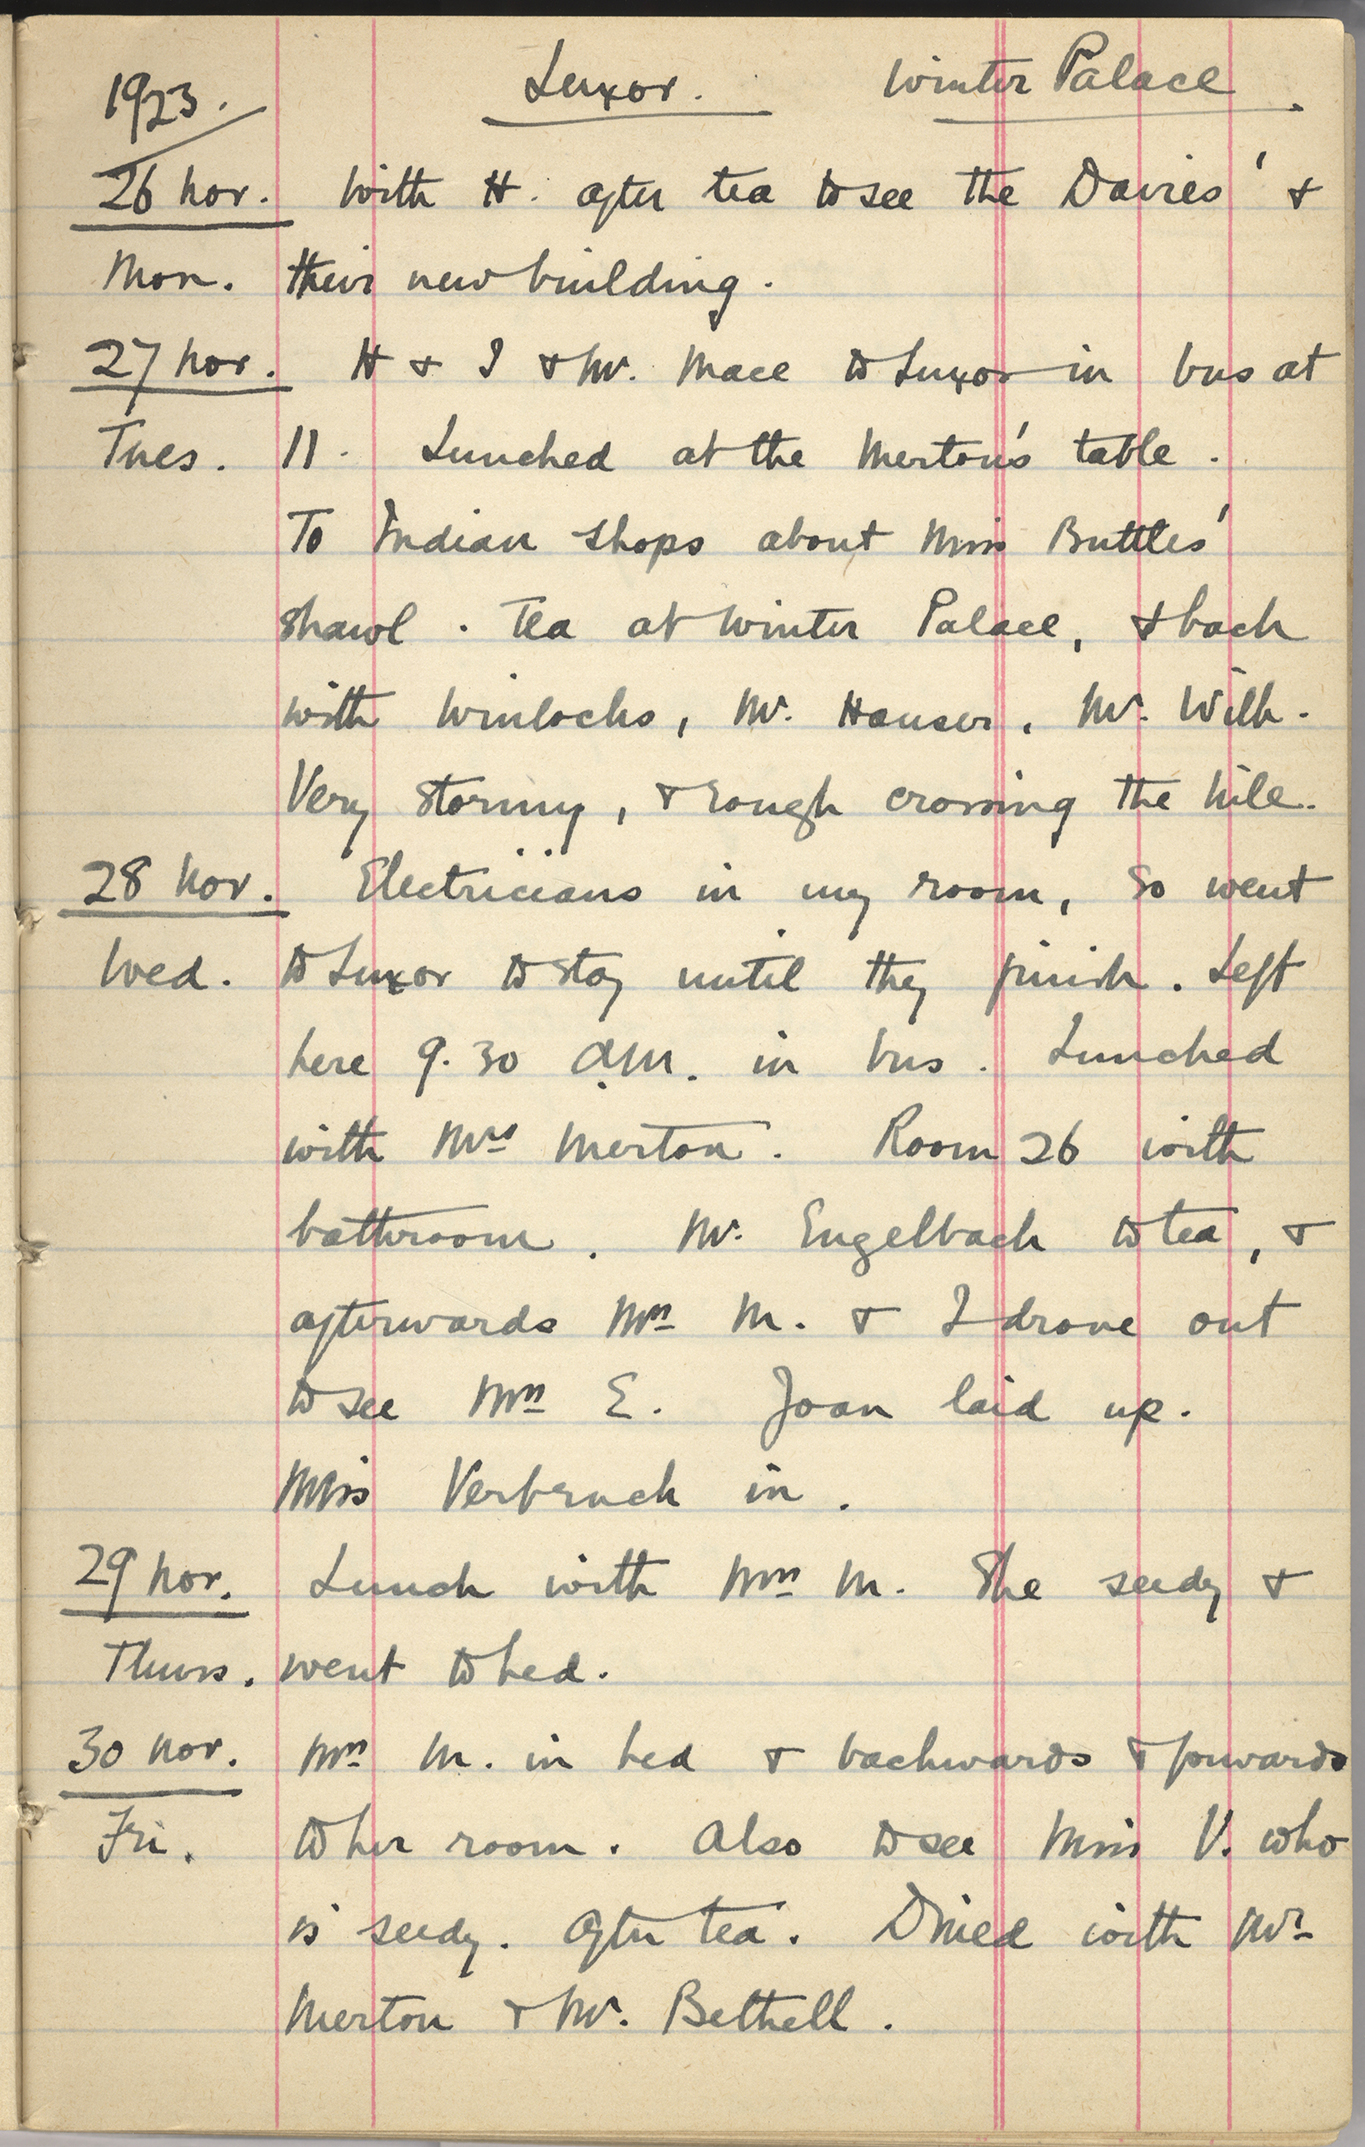 1923. Luxor. Winter Palace.
26 Nov. With H. after tea to see the Davies' &
Mon. their new building.
27 Nov. H & I & Mr. Mace to Luxor in bus at
Tues. 11. Lunched at the Merton's table.
To Indian shops about Miss Buttles'
shawl. Tea at Winter Palace, & back
with Winlocks, Mr. Hauser, Mr. Wilk.
Very stormy, & rough crossing the Nile.
28 Nov. Electricians in my room, so went
Wed. to Luxor to stay until they finish. Left
here 9.30 a.m. in bus. Lunched
with Mrs Merton. Room 26 with
bathroom. Mr. Engelbach to tea, &
afterwards Mrs M. & I drove out
to see Mrs E. Joan laid up.
Miss Verbruck in.
29 Nov. Lunch with Mrs M. She seedy &
Thurs. went to bed.
30 Nov. Mrs M. in bed & backwards & forwards
Fri. to her room. Also to see Miss V. who
is seedy. After tea. Dined with Mr
Merton & Mr. Bethell.